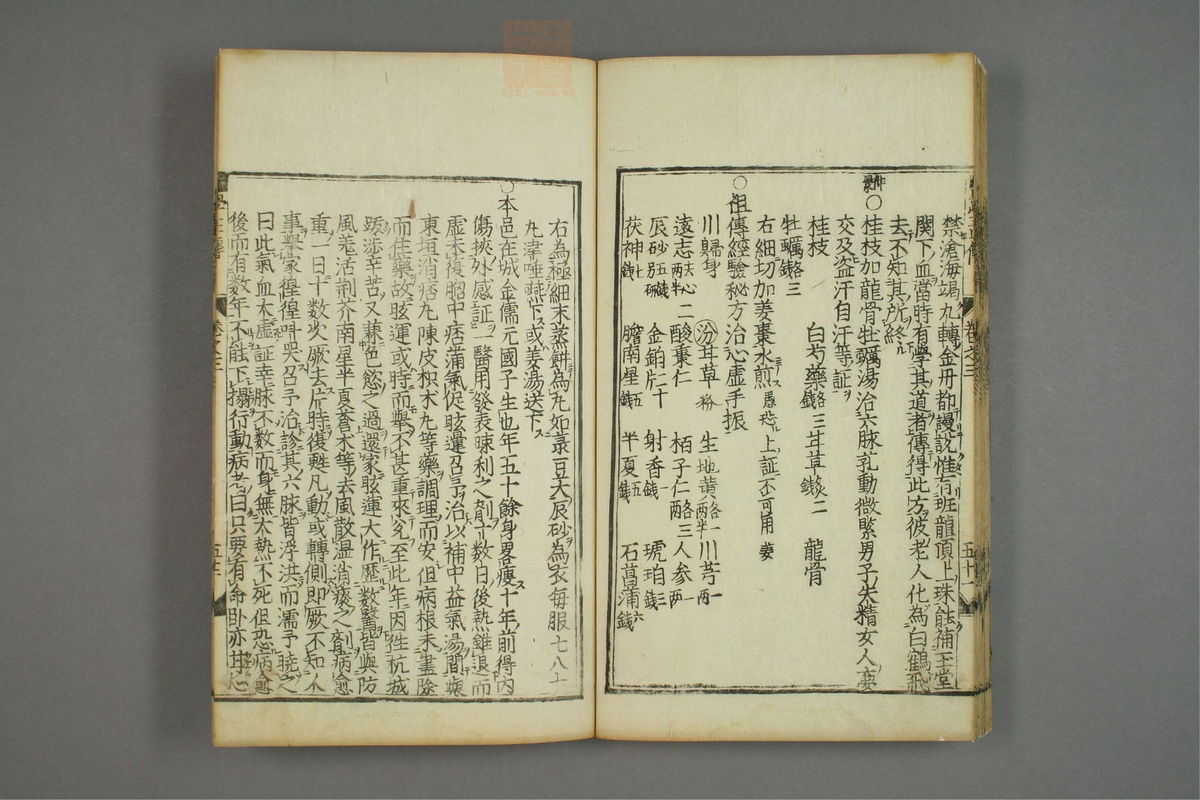 禁滄海竭九轉金丹都謾說惟有班龍頂上珠能補玉堂
關下血當時有學其道者傳得此方彼老人化為白鶴飛
去不知其所終
○桂枝加龍骨牡蠣湯治六脉乳動微緊男子失精女人夢
交及盗汗自汗等証
桂枝 白芍藥 三銖 甘草 二錢 龍骨
牡蠣 三
右細切加姜棗水煎
○祖傳經驗秘方治心虛手振
川歸身 甘草 生地黃 一兩半 川芎 一兩
遠志 去心 二兩半 酸棗仁 栢子仁 三 人參 一兩
辰砂 五錢 金箔 二十片 射香 一錢 琥珀 三錢
茯神 七錢 膽南星 五錢 半夏 五錢 石菖蒲 六錢
右為極細末蒸餅為丸如菉豆大辰砂為衣每服七八十
丸津唾嚥下或姜湯送下
○本邑在城金儒元國子生也年五十餘身畧瘦十年前得內
傷挾外感証一醫用發表踈利之劑十數日後熱雖退而
虛未復胷中痞滿氣促眩運召予治以補中益氣湯間與
東垣消痞丸陳皮枳朮丸等藥調理而安但病根未盡除
而住藥故眩運或時而舉不甚重來
至此年因往杭城
跋涉辛苦又兼色慾之過還家眩運大作歷數醫皆與防
風羗活荊芥南星半夏蒼朮等去風散濕消痰之劑病愈
重一日十數次厥去片時復甦凡動或轉側即厥不知人
事舉家徨惶叫哭召予治診其六脉皆浮洪而濡予曉之
曰此氣血大虛証幸脉不數而身無大熱不死但恐病愈
後而有數年不能下榻行動病者曰只要有命卧亦甘心